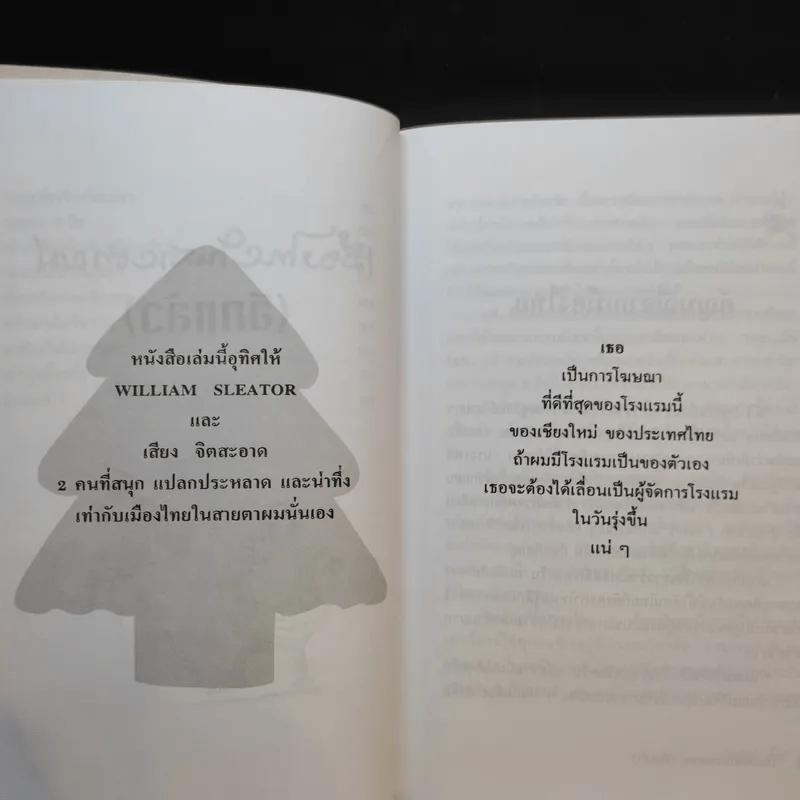 หนังสือเล่มนี้อุทิศให้
WILLIAM SLEATOR
และ
เสียง จิตสะอาด
2 คนที่สนุก แปลกประหลาด และน่าทึ่ง
เท่ากับเมืองไทยในสายตาผมนั่นเอง
เธอ
เป็นการโฆษณา
ที่ดีที่สุดของโรงแรมนี้
ของเชียงใหม่ ของประเทศไทย
ถ้าผมมีโรงแรมเป็นของตัวเอง
เธอจะต้องได้เลื่อนเป็นผู้จัดการโรงแรม
ในวันรุ่งขึ้น
แน่ ๆ